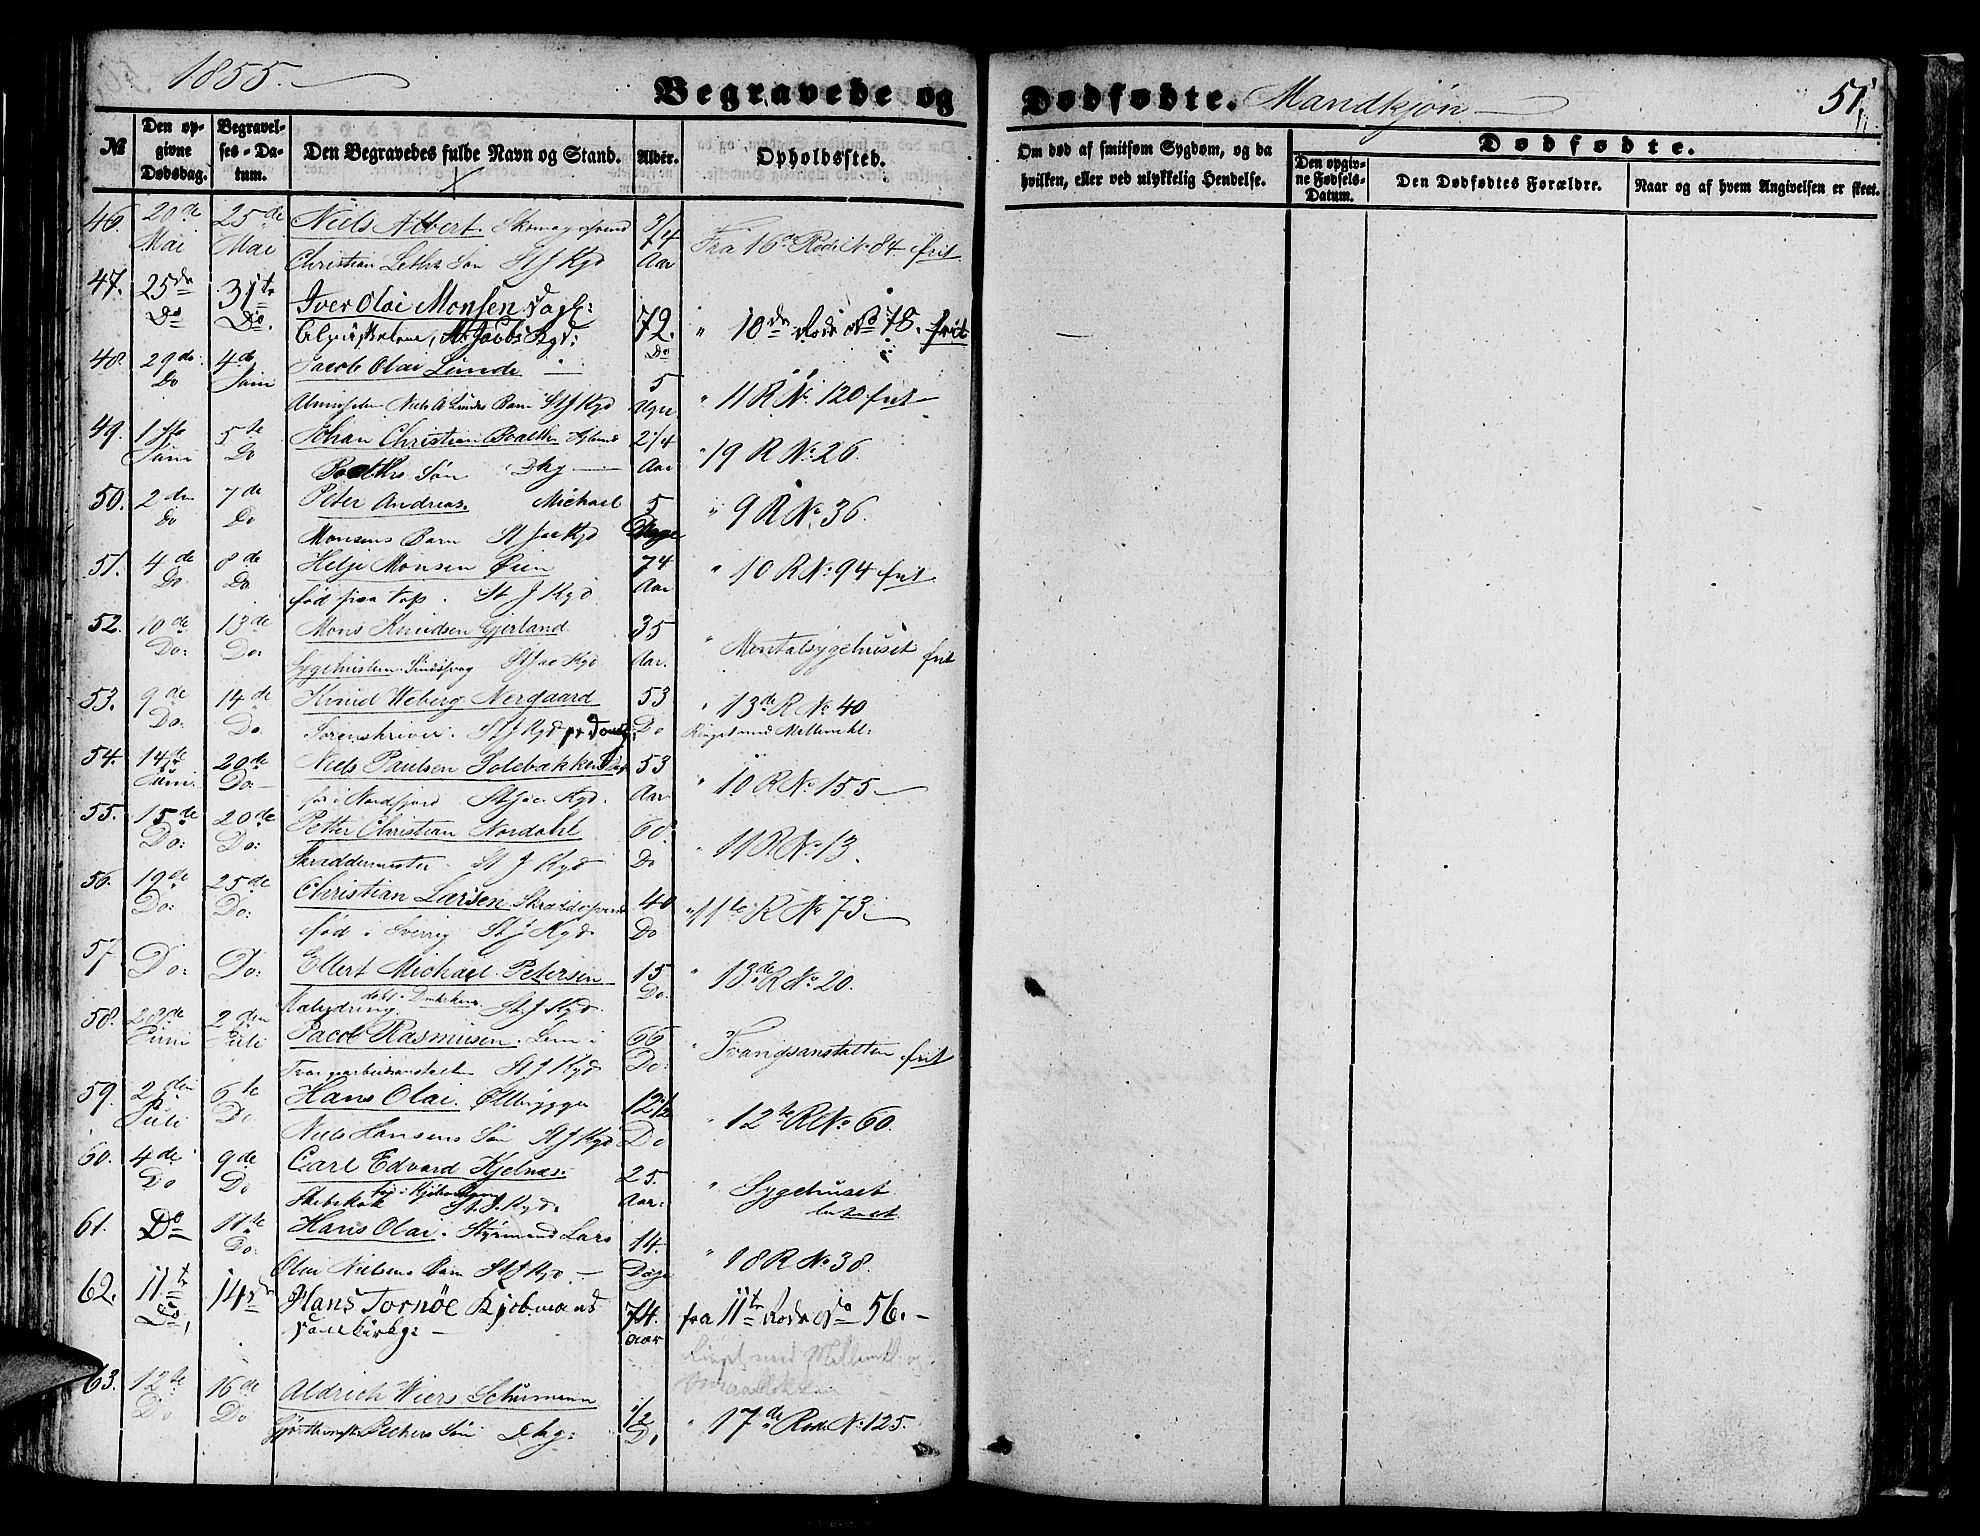 1855.
Begravede og
№
Den op-
givne
Dødsdag.
Begravel-
ses-Da-
tum.
Den Begravedes fulde Navn og Stand.
Alder.
Opholdssted.
46. 20de 25de Niels Albert. 3/4
Mai Mai Christian Søn St J Kgd Aar Fra 16de Rode No 84 frit
47. 25de 31te Iver Olai Monsen
Do Do. St. Jacobs Kgd: 72. " 10de Rode No 78. frit
48. 29de 4de Jacob Olai Lunde Do
Do Juni Niels A Lundes Barn St J Kgd 5 Uger " 11 R No. 120 frit
49. 1ste 5te Johan Christian 2 1/4
Juni Do Søn Dkg Aar " 19 R No. 26.
50. 2den 7de Peter Andreas. Michael 5
Do Do Monsens Barn St Jac Kgd Dage " 9 R No. 36.
51. 4de 8de Helje Monsen Øien 74
Do Do fød paa Vos. St J Kgd Aar " 10 R No: 94 frit
52. 10de 13de Mons Knudsen Gjerland 35
Do: Do: St Jac Kgd Aar. " Mentalsygehuset frit
53. 9de 14de Knud Weberg Nergaard 53 " 13de R No 40
Do: Do. Sorenskriver. St J Kgd Do Ringet med Mellemkl:
54. 14de 20de Niels Paulsen Solebakken 53
Juni Do: fød i Nordfjord St Jac. Kgd. Aar " 10 R No. 155
55. 15de 20de Petter Christian Nordahl 60
Do: Do: Skræddermester. St J Kgd Do " 11 R No. 13.
56. 19de 25de Christian Larsen 40
Do: Do: fød i Sverrig St J Kgd. Do " 11te R No 73
57 Do: Do: Ellert Michael Petersen 15
St. J Kgd. Do. " 13de R No. 20.
58. 28de 2den Jacob Rasmusen. 66
Juni Juli St J Kgd Do: " Tvangsanstalten frit
59. 2den 6te Hans Olai. 12 1/2
Juli Do. Niels Hansens Søn St J Kgd Do " 12te R No. 60.
60. 4de 9de Carl Edvard Kjelnæs. 25.
Do Do Skibskok St. J. Kgd. Aar: " Sygehuset
betalt.
61. Do 11te Hans Olai. Styrmand Lars 14.
Do: Olai Nielsens Barn St J Kgd. Dage " 18 R No 38.
62. 11te 14de Hans Tornöe Kjöbmand 74. fra 11te Rode No 56.
Do, Aar
Ringet med Mellemkl. og
63. 12te 16de Aldrich Wiers Schumann 1/2
Do Do Søn Dkg: Do " 17de Rode No. 125.
Dødfødte. Mandkjøn
51.
Om død af smitsom Sygdom, og da
hvilken, eller ved ulykkelig Hendelse.
Dødfødte.
Den opgiv-
ne Fødsels-
Datum.
Den Dødfødtes Forældre.
Naar og af hvem Angivelsen er skeet.